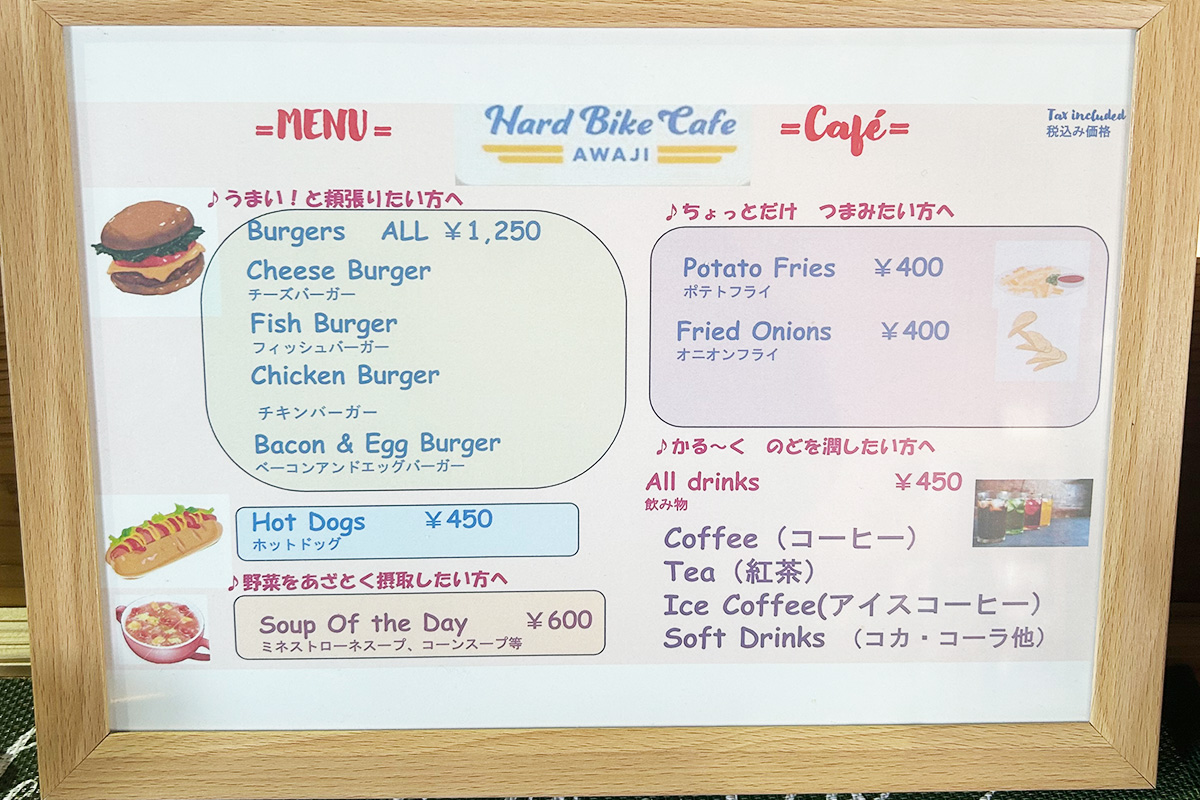 =MENU=
Hard Bike Cafe
AWAJI
=Café=
Tax included
税込み価格
♪うまい！と頬張りたい方へ
Burgers ALL ￥1,250
Cheese Burger
チーズバーガー
Fish Burger
フィッシュバーガー
Chicken Burger
チキンバーガー
Bacon & Egg Burger
ベーコンアンドエッグバーガー
Hot Dogs ￥450
ホットドッグ
♪野菜をあざとく摂取したい方へ
Soup Of the Day ￥600
ミネストローネスープ、コーンスープ等
♪ちょっとだけ つまみたい方へ
Potato Fries ￥400
ポテトフライ
Fried Onions ￥400
オニオンフライ
♪かる～く のどを潤したい方へ
All drinks ￥450
飲み物
Coffee（コーヒー）
Tea（紅茶）
Ice Coffee(アイスコーヒー）
Soft Drinks （コカ・コーラ他）